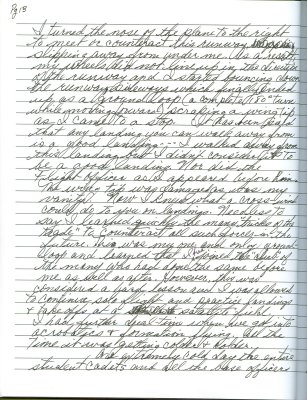 Pg 13
I turned the nose of the plane to the right
to meet or counteract this runway
slipping away from under me. As a result
my wheels did not line up in the direction
of the runway and I started bouncing down
the runway sideways which finally ended
up as a ground loop (a complete 180° turn
while moving forward) scraping a wing tip
as I came to a stop. It has been said
that any landing you can walk away from
is a good landing -- I walked away from
this landing but I didn't consider it to
be a good landing. Nor did the
Flight officer I had appeared before him.
The wing tip was damaged, as was my
vanity. Now I knew what a cross wind
could do to you on landings. Needless to
say I learned quickly the many "tricks of the
trade" to counteract such forces in the
future. This was my one and only ground
loop and learned that I joined the club of
the many who had done the same before
me as well as after. However, this was
considered a hard lesson and I was allowed
to continue solo flight and practice landings
& take offs at a satellite field.
I had further dual time when we got into
acrobatics & formation flying. All the
time it was getting colder & colder.
One extremely cold day the entire
student cadets and all the base officers